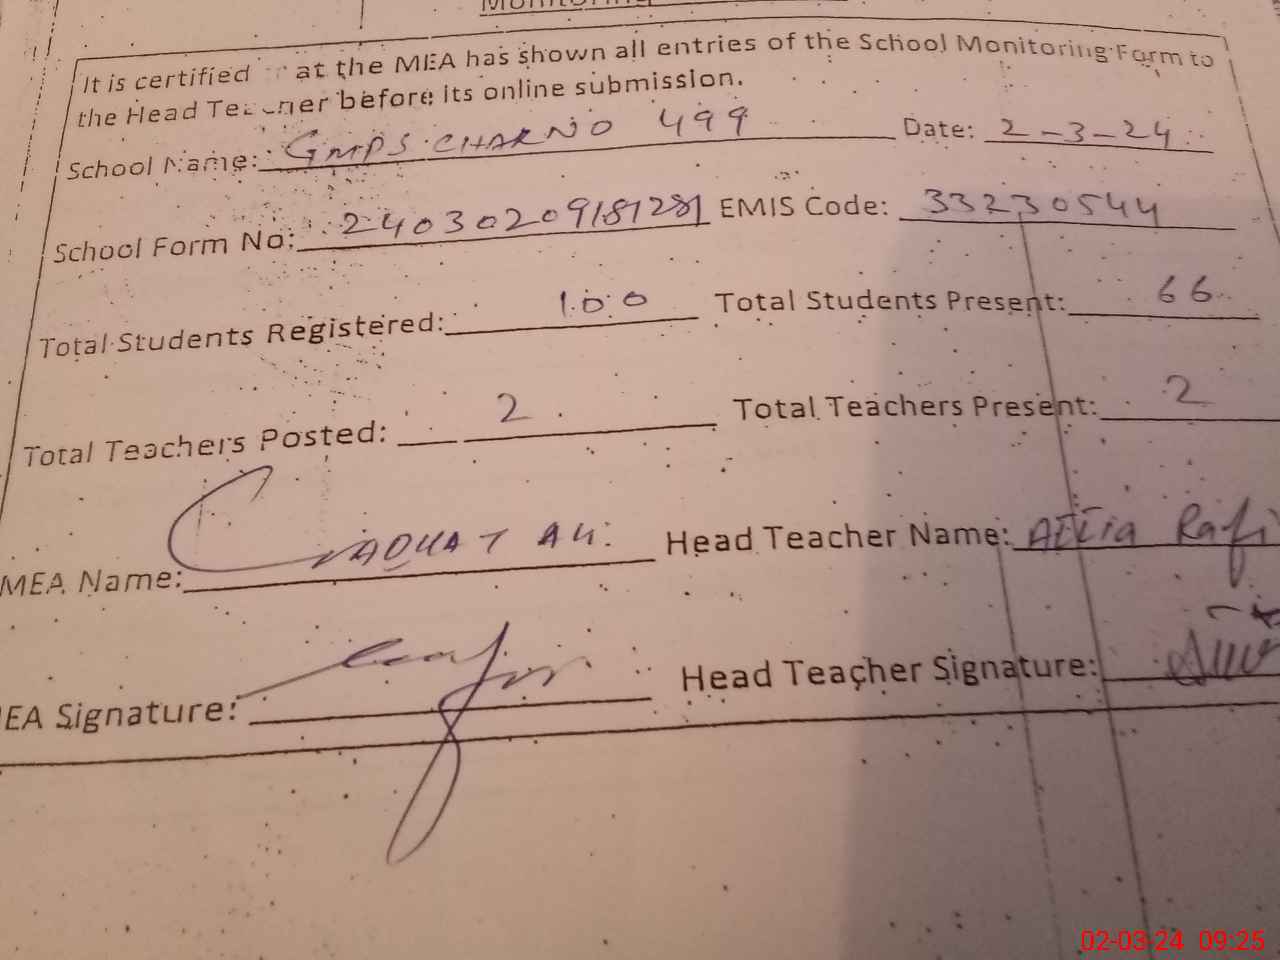 It is certified at the MEA has shown all entries of the School Monitoring Form to
the Head Teacher before its online submission.
School Name: GMPS CHAK NO 499 Date: 2-3-24
School Form No: 24030209181281 EMIS Code: 33230544
Total Students Registered: 100 Total Students Present: 66
Total Teachers Posted: 2 Total Teachers Present: 2
MEA Name: LIAQUAT ALI Head Teacher Name: Attia Rafi
EA Signature: Head Teacher Signature:
02-03-24 09:25